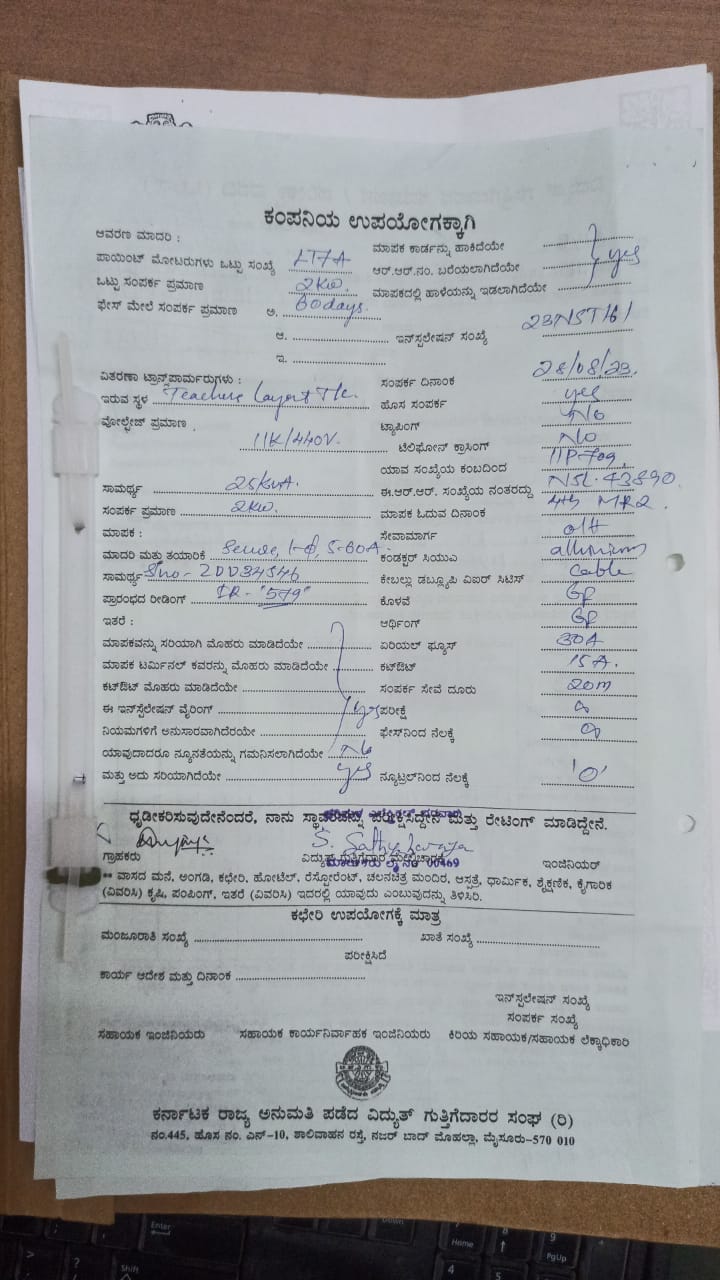 ಕಂಪನಿಯ ಉಪಯೋಗಕ್ಕಾಗಿ
ಆವರಣ ಮಾದರಿ : ಮಾಪಕ ಕಾರ್ಡನ್ನು ಹಾಕಿದೆಯೇ
ಪಾಯಿಂಟ್ ಮೋಟರುಗಳು ಒಟ್ಟು ಸಂಖ್ಯೆ LT7A ಆರ್.ಆರ್.ನಂ. ಬರೆಯಲಾಗಿದೆಯೇ yes
ಒಟ್ಟು ಸಂಪರ್ಕ ಪ್ರಮಾಣ 2kw. ಮಾಪಕದಲ್ಲಿ ಹಾಳೆಯನ್ನು ಇಡಲಾಗಿದೆಯೇ
ಫೇಸ್ ಮೇಲೆ ಸಂಪರ್ಕ ಪ್ರಮಾಣ ಅ. 60days.
ಆ. ಇನ್‌ಸ್ಪಲೇಷನ್ ಸಂಖ್ಯೆ 23NST161
ಇ.
ವಿತರಣಾ ಟ್ರಾನ್ಸ್‌ಪಾರ್ಮರುಗಳು : ಸಂಪರ್ಕ ದಿನಾಂಕ 28/08/23.
ಇರುವ ಸ್ಥಳ Teachers Layout ಹೊಸ ಸಂಪರ್ಕ yes
ವೋಲ್ಟೇಜ್ ಪ್ರಮಾಣ ಟ್ಯಾಪಿಂಗ್ No
11K/440V. ಟೆಲಿಫೋನ್ ಕ್ರಾಸಿಂಗ್ No
ಯಾವ ಸಂಖ್ಯೆಯ ಕಂಬದಿಂದ
ಸಾಮರ್ಥ್ಯ 25kvA. ಈ.ಆರ್.ಆರ್. ಸಂಖ್ಯೆಯ ನಂತರದ್ದು NSL.43890.
ಸಂಪರ್ಕ ಪ್ರಮಾಣ 2kw. ಮಾಪಕ ಓದುವ ದಿನಾಂಕ 4th MR2.
ಮಾಪಕ : ಸೇವಾಮಾರ್ಗ o/H
ಮಾದರಿ ಮತ್ತು ತಯಾರಿಕೆ 5-60A. ಕಂಡಕ್ಟರ್ ಸಿಯುಎ
ಸಾಮರ್ಥ್ಯ Sno- ಕೇಬಲ್ಲು ಡಬ್ಲ್ಯೂಪಿ ವಿಐರ್ ಸಿಟಿಸ್ Cable
ಪ್ರಾರಂಭದ ರೀಡಿಂಗ್ IR- "579" ಕೊಳವೆ GP
ಇತರೆ : ಆರ್ಥಿಂಗ್ GP
ಮಾಪಕವನ್ನು ಸರಿಯಾಗಿ ಮೊಹರು ಮಾಡಿದೆಯೇ ಏರಿಯಲ್ ಫ್ಯೂಸ್ 30A
ಮಾಪಕ ಟರ್ಮಿನಲ್ ಕವರನ್ನು ಮೊಹರು ಮಾಡಿದೆಯೇ ಕಟ್‌ಔಟ್ 15A.
ಕಟ್‌ಔಟ್ ಮೊಹರು ಮಾಡಿದೆಯೇ ಸಂಪರ್ಕ ಸೇವೆ ದೂರು 20m
ಈ ಇನ್‌ಸ್ಪೆಲೇಷನ್ ವೈರಿಂಗ್ yes ಪರೀಕ್ಷೆ
ನಿಯಮಗಳಿಗೆ ಅನುಸಾರವಾಗಿದೆರಯೇ ಫೇಸ್‌ನಿಂದ ನೆಲಕ್ಕೆ
ಯಾವುದಾದರೂ ನ್ಯೂನತೆಯನ್ನು ಗಮನಿಸಲಾಗಿದೆಯೇ No
ಮತ್ತು ಅದು ಸರಿಯಾಗಿದೆಯೇ yes ನ್ಯೂಟ್ರಲ್‌ನಿಂದ ನೆಲಕ್ಕೆ '0'
ಧೃಡೀಕರಿಸುವುದೇನೆಂದರೆ, ನಾನು ಸ್ಥಾವರವನ್ನು ಪರೀಕ್ಷಿಸಿದ್ದೇನೆ ಮತ್ತು ರೇಟಿಂಗ್ ಮಾಡಿದ್ದೇನೆ.
ಗ್ರಾಹಕರು ವಿದ್ಯುತ್ ಗುತ್ತಿಗೆದಾರ ಇಂಜಿನಿಯರ್
** ವಾಸದ ಮನೆ, ಅಂಗಡಿ, ಕಛೇರಿ, ಹೋಟೆಲ್, ರೆಸ್ಟೋರೆಂಟ್, ಚಲನಚಿತ್ರ ಮಂದಿರ, ಆಸ್ಪತ್ರೆ, ಧಾರ್ಮಿಕ, ಶೈಕ್ಷಣಿಕ, ಕೈಗಾರಿಕ
(ವಿವರಿಸಿ) ಕೃಷಿ, ಪಂಪಿಂಗ್, ಇತರೆ (ವಿವರಿಸಿ) ಇದರಲ್ಲಿ ಯಾವುದು ಎಂಬುವುದನ್ನು ತಿಳಿಸಿರಿ.
ಕಛೇರಿ ಉಪಯೋಗಕ್ಕೆ ಮಾತ್ರ
ಮಂಜೂರಾತಿ ಸಂಖ್ಯೆ ಖಾತೆ ಸಂಖ್ಯೆ
ಪರೀಕ್ಷಿಸಿದೆ
ಕಾರ್ಯ ಆದೇಶ ಮತ್ತು ದಿನಾಂಕ
ಇನ್‌ಸ್ಪಲೇಷನ್ ಸಂಖ್ಯೆ
ಸಂಪರ್ಕ ಸಂಖ್ಯೆ
ಸಹಾಯಕ ಇಂಜಿನಿಯರು ಸಹಾಯಕ ಕಾರ್ಯನಿರ್ವಾಹಕ ಇಂಜಿನಿಯರು ಕಿರಿಯ ಸಹಾಯಕ/ಸಹಾಯಕ ಲೆಕ್ಕಾಧಿಕಾರಿ
ಕರ್ನಾಟಕ ರಾಜ್ಯ ಅನುಮತಿ ಪಡೆದ ವಿದ್ಯುತ್ ಗುತ್ತಿಗೆದಾರರ ಸಂಘ (ರಿ)
ನಂ.445, ಹೊಸ ನಂ. ಎನ್-10, ಶಾಲಿವಾಹನ ರಸ್ತೆ, ನಜರ್ ಬಾದ್ ಮೊಹಲ್ಲಾ, ಮೈಸೂರು-570 010
Enter
Shift
Home
PgUp